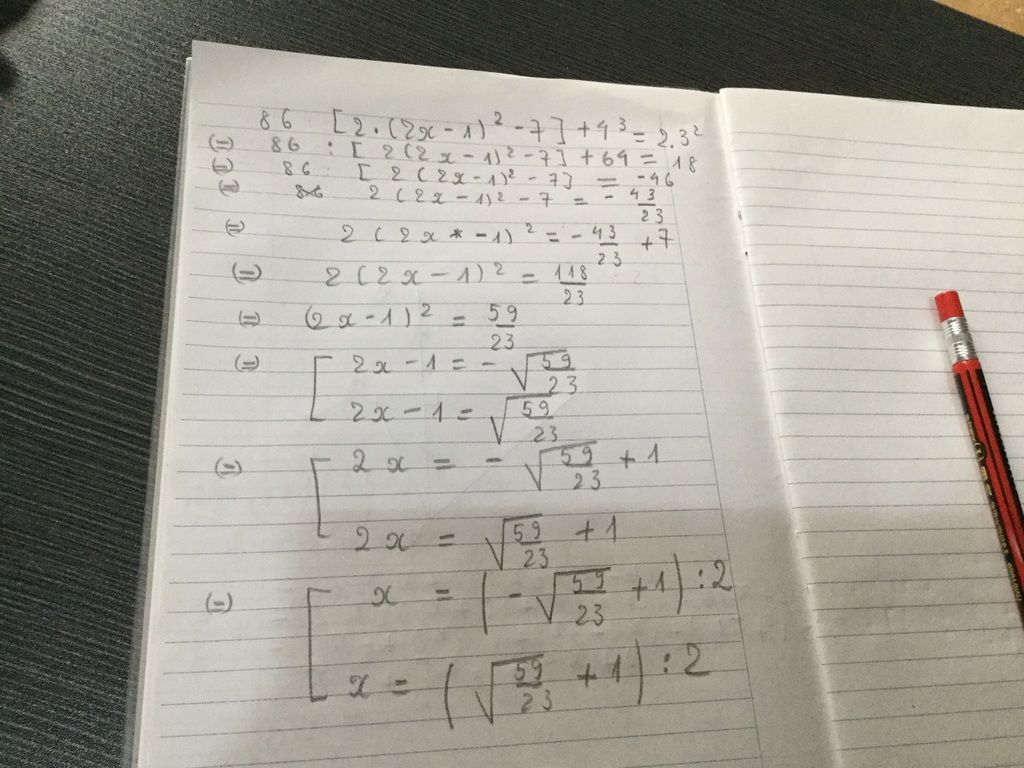 86 : [2.(2x-1)² -7] +4³ = 2.3²
(=) 86 : [ 2(2x-1)² -7] + 64 = 18
(=) 86 : [ 2(2x-1)² -7] = -46
(=) 2(2x-1)² - 7 = - 43/23
(=) 2(2x * -1)² = - 43/23 +7
(=) 2(2x-1)² = 118/23
(=) (2x-1)² = 59/23
(=) [ 2x-1 = - √59/23
2x-1 = √59/23
(=) [ 2x = - √59/23 + 1
2x = √59/23 + 1
(=) [ x = ( - √59/23 + 1 ) : 2
x = ( √59/23 + 1 ) : 2